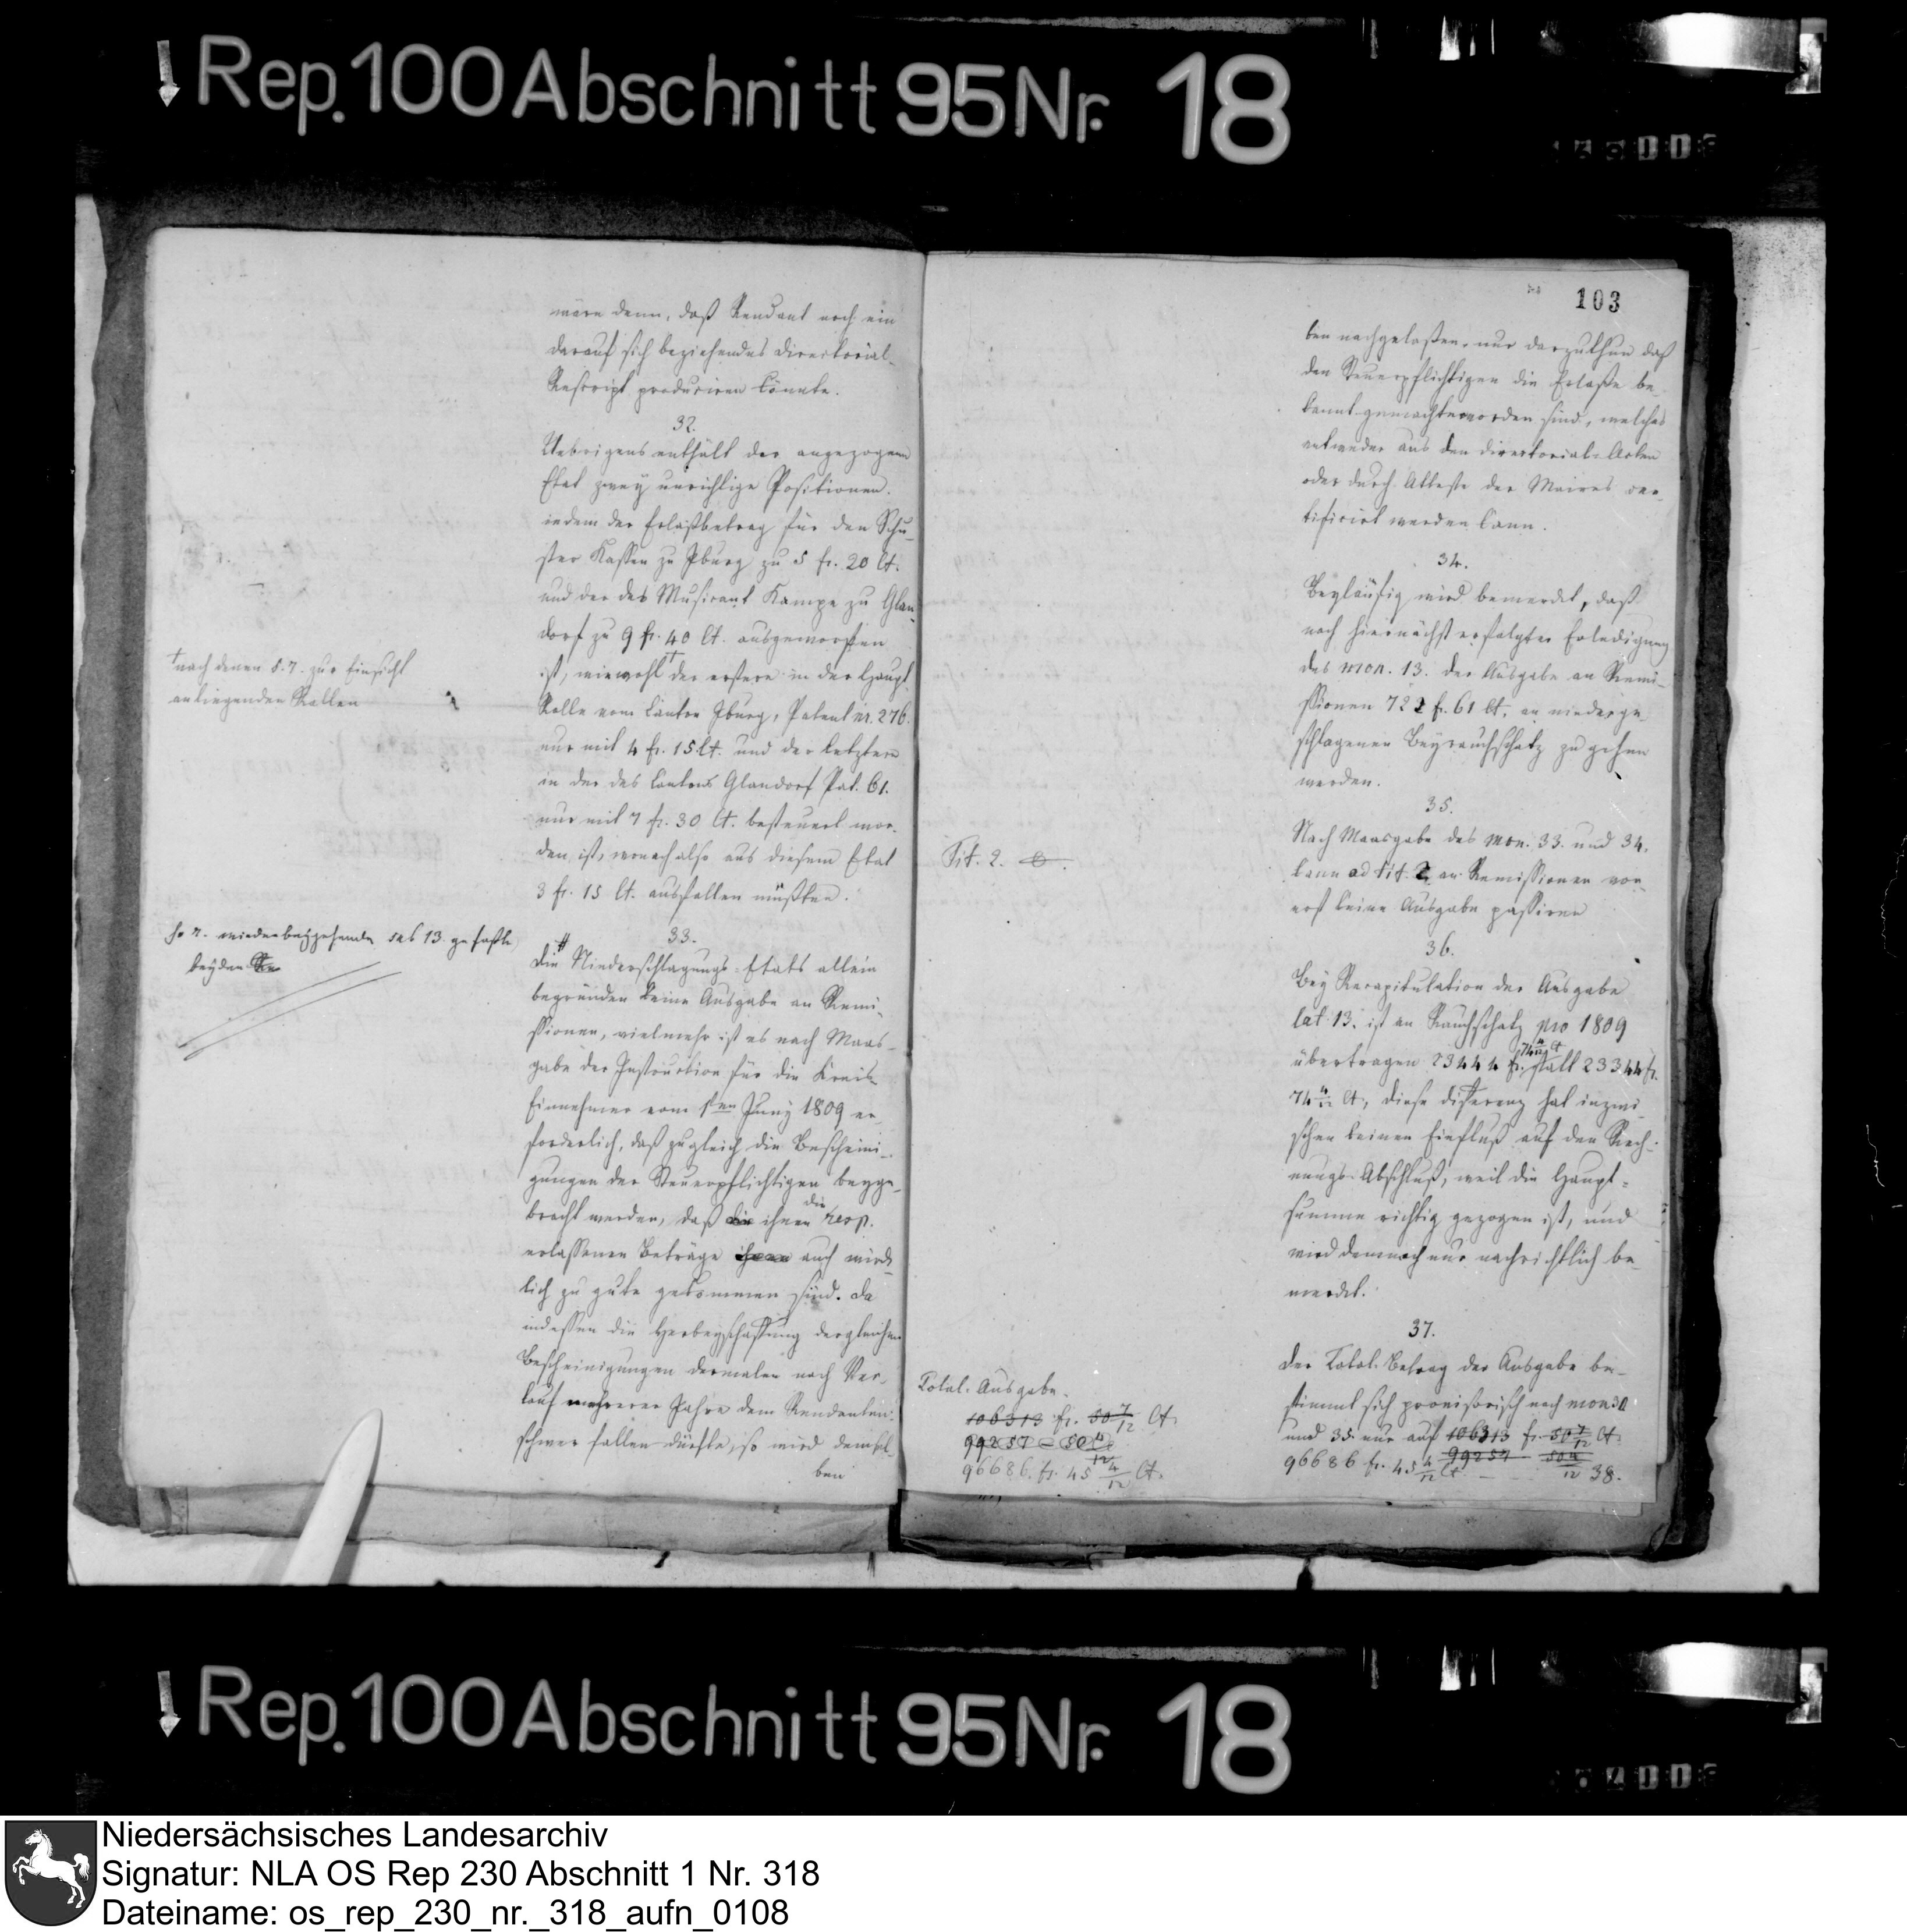 Rep. 100 Abschnitt 95 Nr. 18
wäre denn, daß Rendant noch ein
darauf sich beziehendes Directorial-
Rescript produciren könnte.
32.
Uebrigens enthält der angezogene
Etat zwey unrichtige Positionen.
indem der Erlaßbetrag für den Schu-
ster Kassen zu Iburg zu 5 fr. 20 Ct.
und der des Musicant Kampe zu Glan-
dorf zu 9 fr. 40 Ct. ausgeworfen
ist, wiewohl † der erstere in der Haupt-
Rolle vom Canton Iburg, Patent nr. 276.
nur mit 4 fr. 15 Ct. und der letztere
in der des Cantons Glandorf Pat. 61.
nur mit 7 fr. 30 Ct. besteuert wor-
den ist, wonach also aus diesem Etat
3 fr. 15 Ct. ausfallen müßten.
† nach denen §. 7. zur Einsicht
anliegenden Rollen
33.
Die Niederschlagungs-Etats allein
begründen keine Ausgabe an Remi-
ssionen, vielmehr ist es nach Maas-
gabe der Instruction für die Kreis-
Einnehmer vom 1ten Juny 1809 er-
forderlich, daß zugleich die Bescheini-
gungen der Steuerpflichtigen beyge-
bracht werden, daß die ihnen die resp.
erlassenen Beträge ihnen auch wirk-
lich zu gute gekommen sind. Da
indessen die Herbeyschaffung dergleichen
Bescheinigungen dermalen nach Ver-
lauf mehrerer Jahre dem Rendanten
schwer fallen dürfte, so wird demsel-
ben
beyden
103
ben nachgelaßen, nur darzuthun daß
den Steuerpflichtigen die Erlaße be-
kannt gemacht worden sind, welches
entweder aus den Directorial-Acten
oder durch Atteste der Maires cer-
tificirt werden kann.
34.
Beyläufig wird bemerckt, daß
nach hiernächst erfolgter Erledigung
des mon. 13. der Ausgabe an Remi-
ssionen 722 fr. 61 Ct. an niederge-
schlagenen Beyrauchschatz zu gehen
werden.
35.
Nach Maasgabe des Mon. 33. und 34.
kann ad Tit. 2 an Remissionen vor-
erst keine Ausgabe passiren
Tit. 2.
36.
Bey Recapitulation der Ausgabe
lit. 13. ist an Rauchschatz pro 1809
übertragen 23444 fr. 74 4/12 Ct statt 23344 fr.
74 4/12 Ct, diese Differenz hat inzwi-
schen keinen Einfluß auf den Rech-
nungs-Abschluß, weil die Haupt-
summe richtig gezogen ist, und
wird demnach nur nachrichtlich be-
merckt.
37.
Der Total-Betrag der Ausgabe be-
stimmt sich provisorisch nach mon 30
und 35. nur auf 106313 fr. 50 7/12 Ct.
99257 50 4/12
96686 fr. 45 4/12 Ct
38.
Total-Ausgabe.
106313 fr. 50 7/12 Ct.
99257 - 50 4/12
96686. fr. 45 4/12 Ct.
Rep. 100 Abschnitt 95 Nr. 18
Niedersächsisches Landesarchiv
Signatur: NLA OS Rep 230 Abschnitt 1 Nr. 318
Dateiname: os_rep_230_nr._318_aufn_0108